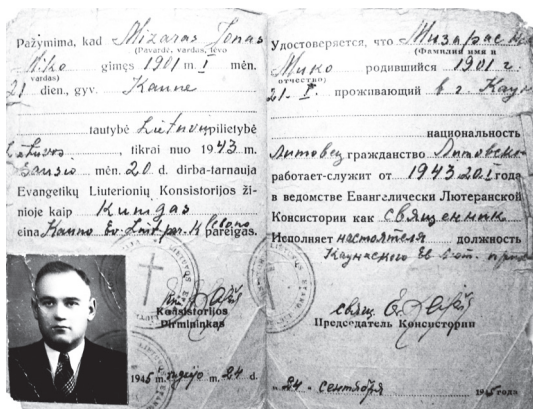 Pažymima, kad Mizaras Jonas
(Pavardė, vardas, tėvo
Miko gimęs 1901 m. I mėn.
vardas)
21 dien., gyv. Kaune
tautybė Lietuvių pilietybė
Lietuvos, tikrai nuo 1943 m.
Sausio mėn. 20 d. dirba-tarnauja
Evangelikų Liuterionių Konsistorijos ži-
nioje kaip Kunigas
eina Kauno Ev. Liut. par. Klebono pareigas.
Konsistorijos
Pirmininkas
1945 m. rugsėjo m. 24 d.
Удостоверяется, что Мизарас
(Фамилия имя и
Мико родившийся 1901 г.
отчество)
21-I. проживающий в г. Каун
национальность
Литовец гражданство Литовское
работает-служит от 1943 20.I года
в ведомстве Евангелически Лютеранской
Консистории как священник
Исполняет настоятеля должность
Каунасского Ев. Лют. прихода
свящ.
Председатель Консистории
„24“ сентября 1945 года